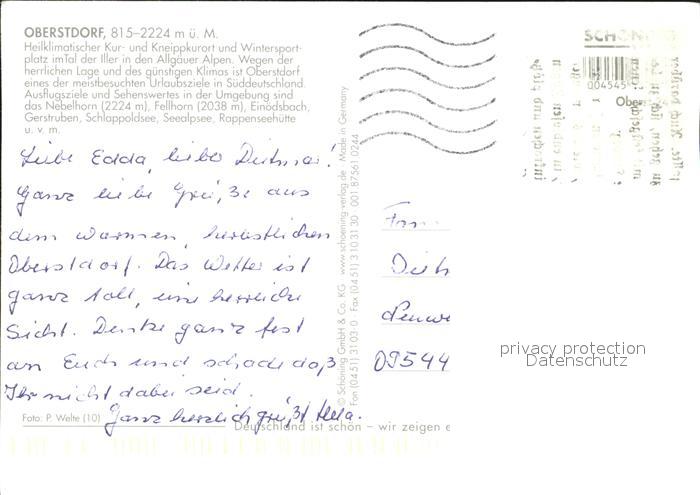 OBERSTDORF, 815–2224 m ü. M.
Heilklimatischer Kur- und Kneippkurort und Wintersport-
platz imTal der Iller in den Allgäuer Alpen. Wegen der
herrlichen Lage und des günstigen Klimas ist Oberstdorf
eines der meistbesuchten Urlaubsziele in Süddeutschland.
Ausflugsziele und Sehenswertes in der Umgebung sind
das Nebelhorn (2224 m), Fellhorn (2038 m), Einödsbach,
Gerstruben, Schlappoldsee, Seealpsee, Rappenseehütte
u. v. m.
Liebe Edda, lieber Dietmar!
Ganz liebe Grüße aus
dem warmen, herbstlichen
Oberstdorf. Das Wetter ist
ganz toll, eine herrliche
Sicht. Denke ganz fest
an Euch und schade daß
Ihr nicht dabei seid.
Ganz herzlich grüßt
Foto: P. Welte (10)
© Schöning GmbH & Co. KG · www.schoening-verlag.de · Made in Germany
Fon (04 51) 3 10 3-0 · Fax (04 51) 3 10 31 30 · 001 87561 0244
Deutschland ist schön – wir zeigen e
SCHÖNING
004545
Ober
Fam
Dieth
09544
privacy protection
Datenschutz